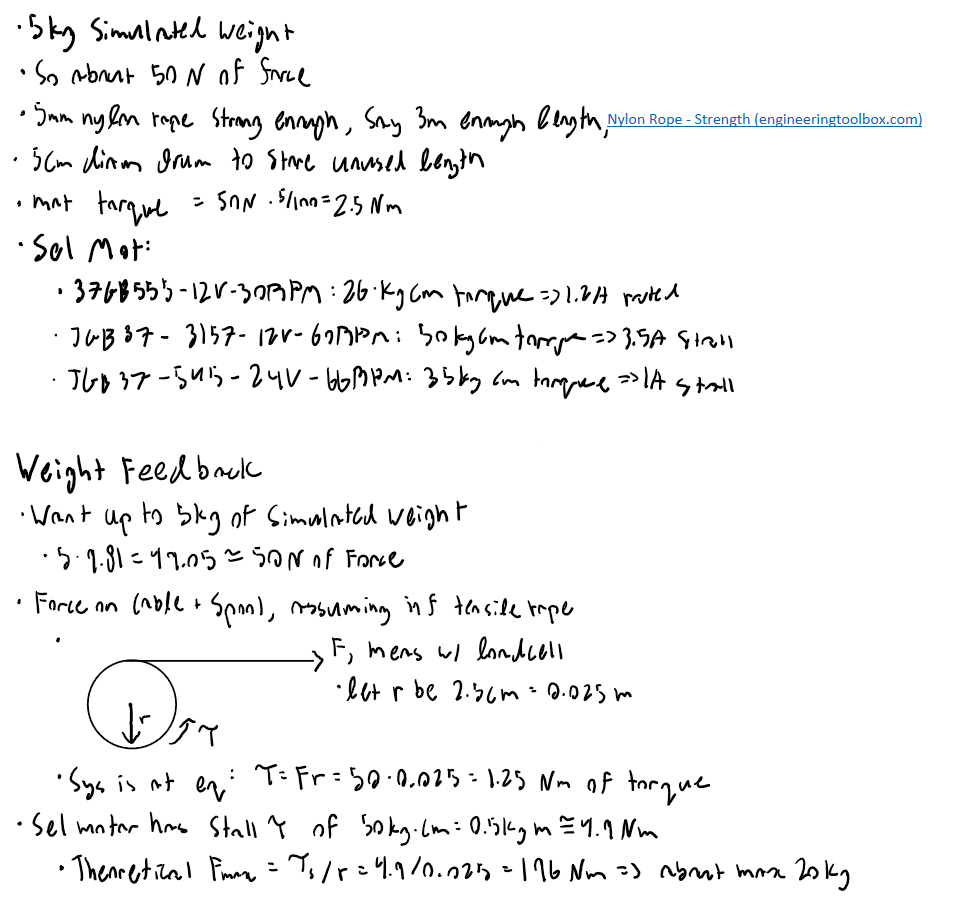 · 5kg Simulated Weight
· So about 50 N of force
· 5mm nylon rope strong enough, Say 3m enough length, Nylon Rope - Strength (engineeringtoolbox.com)
· 5cm diam drum to store unused length
· mot torque = 50N · 5/100 = 2.5 Nm
· Sel Mot:
· 37GB555-12V-30RPM: 26·kgcm torque => 1.2A rated
· JGB37-3157-12V-60RPM: 50kgcm torque => 3.5A Stall
· JGB37-545-24V-66RPM: 35kg cm torque => 1A stall
Weight Feedback
· Want up to 5kg of simulated weight
· 5·9.81 = 49.05 ≅ 50N of Force
· Force on Cable + Spool, assuming inf tensile rope
· F, meas w/ loadcell
· let r be 2.5cm = 0.025 m
r
τ
· Sys is at eq: τ = Fr = 50·0.025 = 1.25 Nm of torque
· Sel motor has Stall τ of 50kg·cm = 0.5kg m ≅ 4.9 Nm
· Theoretical Fmax = τs/r = 4.9/0.025 = 196 Nm => about max 20kg